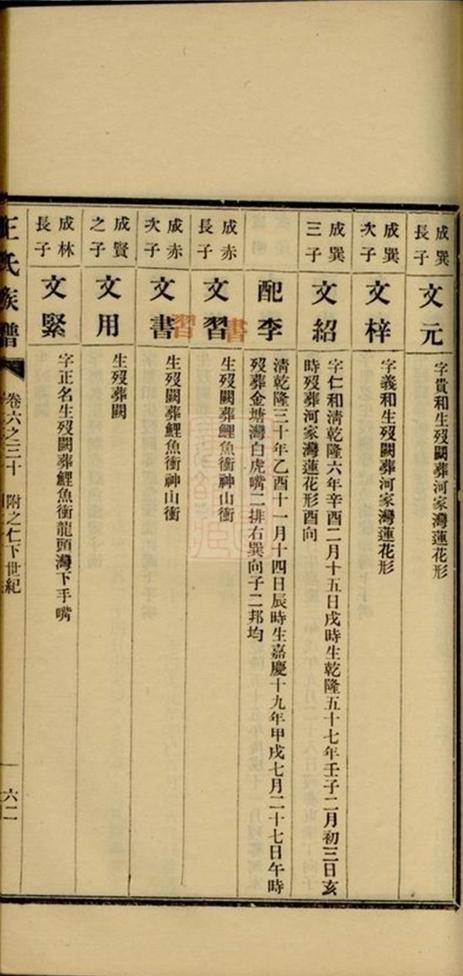 成巽長子
文元
字貴和生歿闕葬河家灣蓮花形
成巽次子
文梓
字義和生歿闕葬河家灣蓮花形
成巽三子
文紹
字仁和清乾隆六年辛酉二月十五日戌時生乾隆五十七年壬子二月初三日亥
時歿葬河家灣蓮花形酉向
配李
清乾隆三十年乙酉十一月十四日辰時生嘉慶十九年甲戌七月二十七日午時
歿葬金塘灣白虎嘴二排右巽向子二邦均
成赤長子
文習
書
生歿闕葬鯉魚衝神山衝
成赤次子
文書
習
生歿闕葬鯉魚衝神山衝
成賢之子
文用
生歿葬闕
成林長子
文緊
字正名生歿闕葬鯉魚衝龍頭灣下手嘴
王氏族譜
卷六之三十 附之仁下世紀
六二